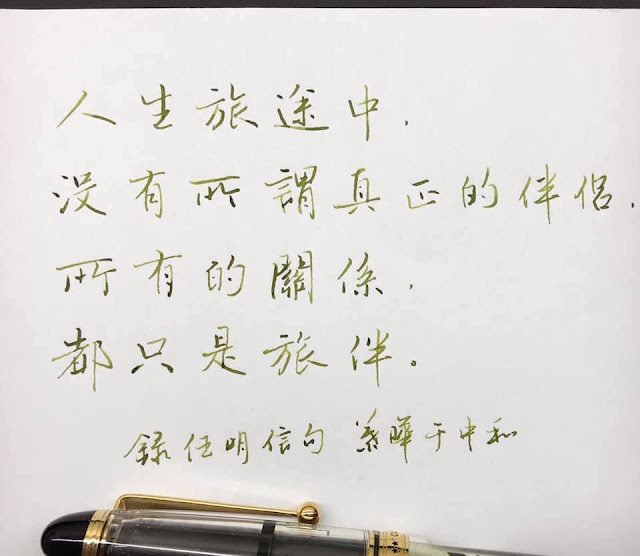 人生旅途中，
沒有所謂真正的伴侶，
所有的關係，
都只是旅伴。
錄任明信句 葉曄于中和